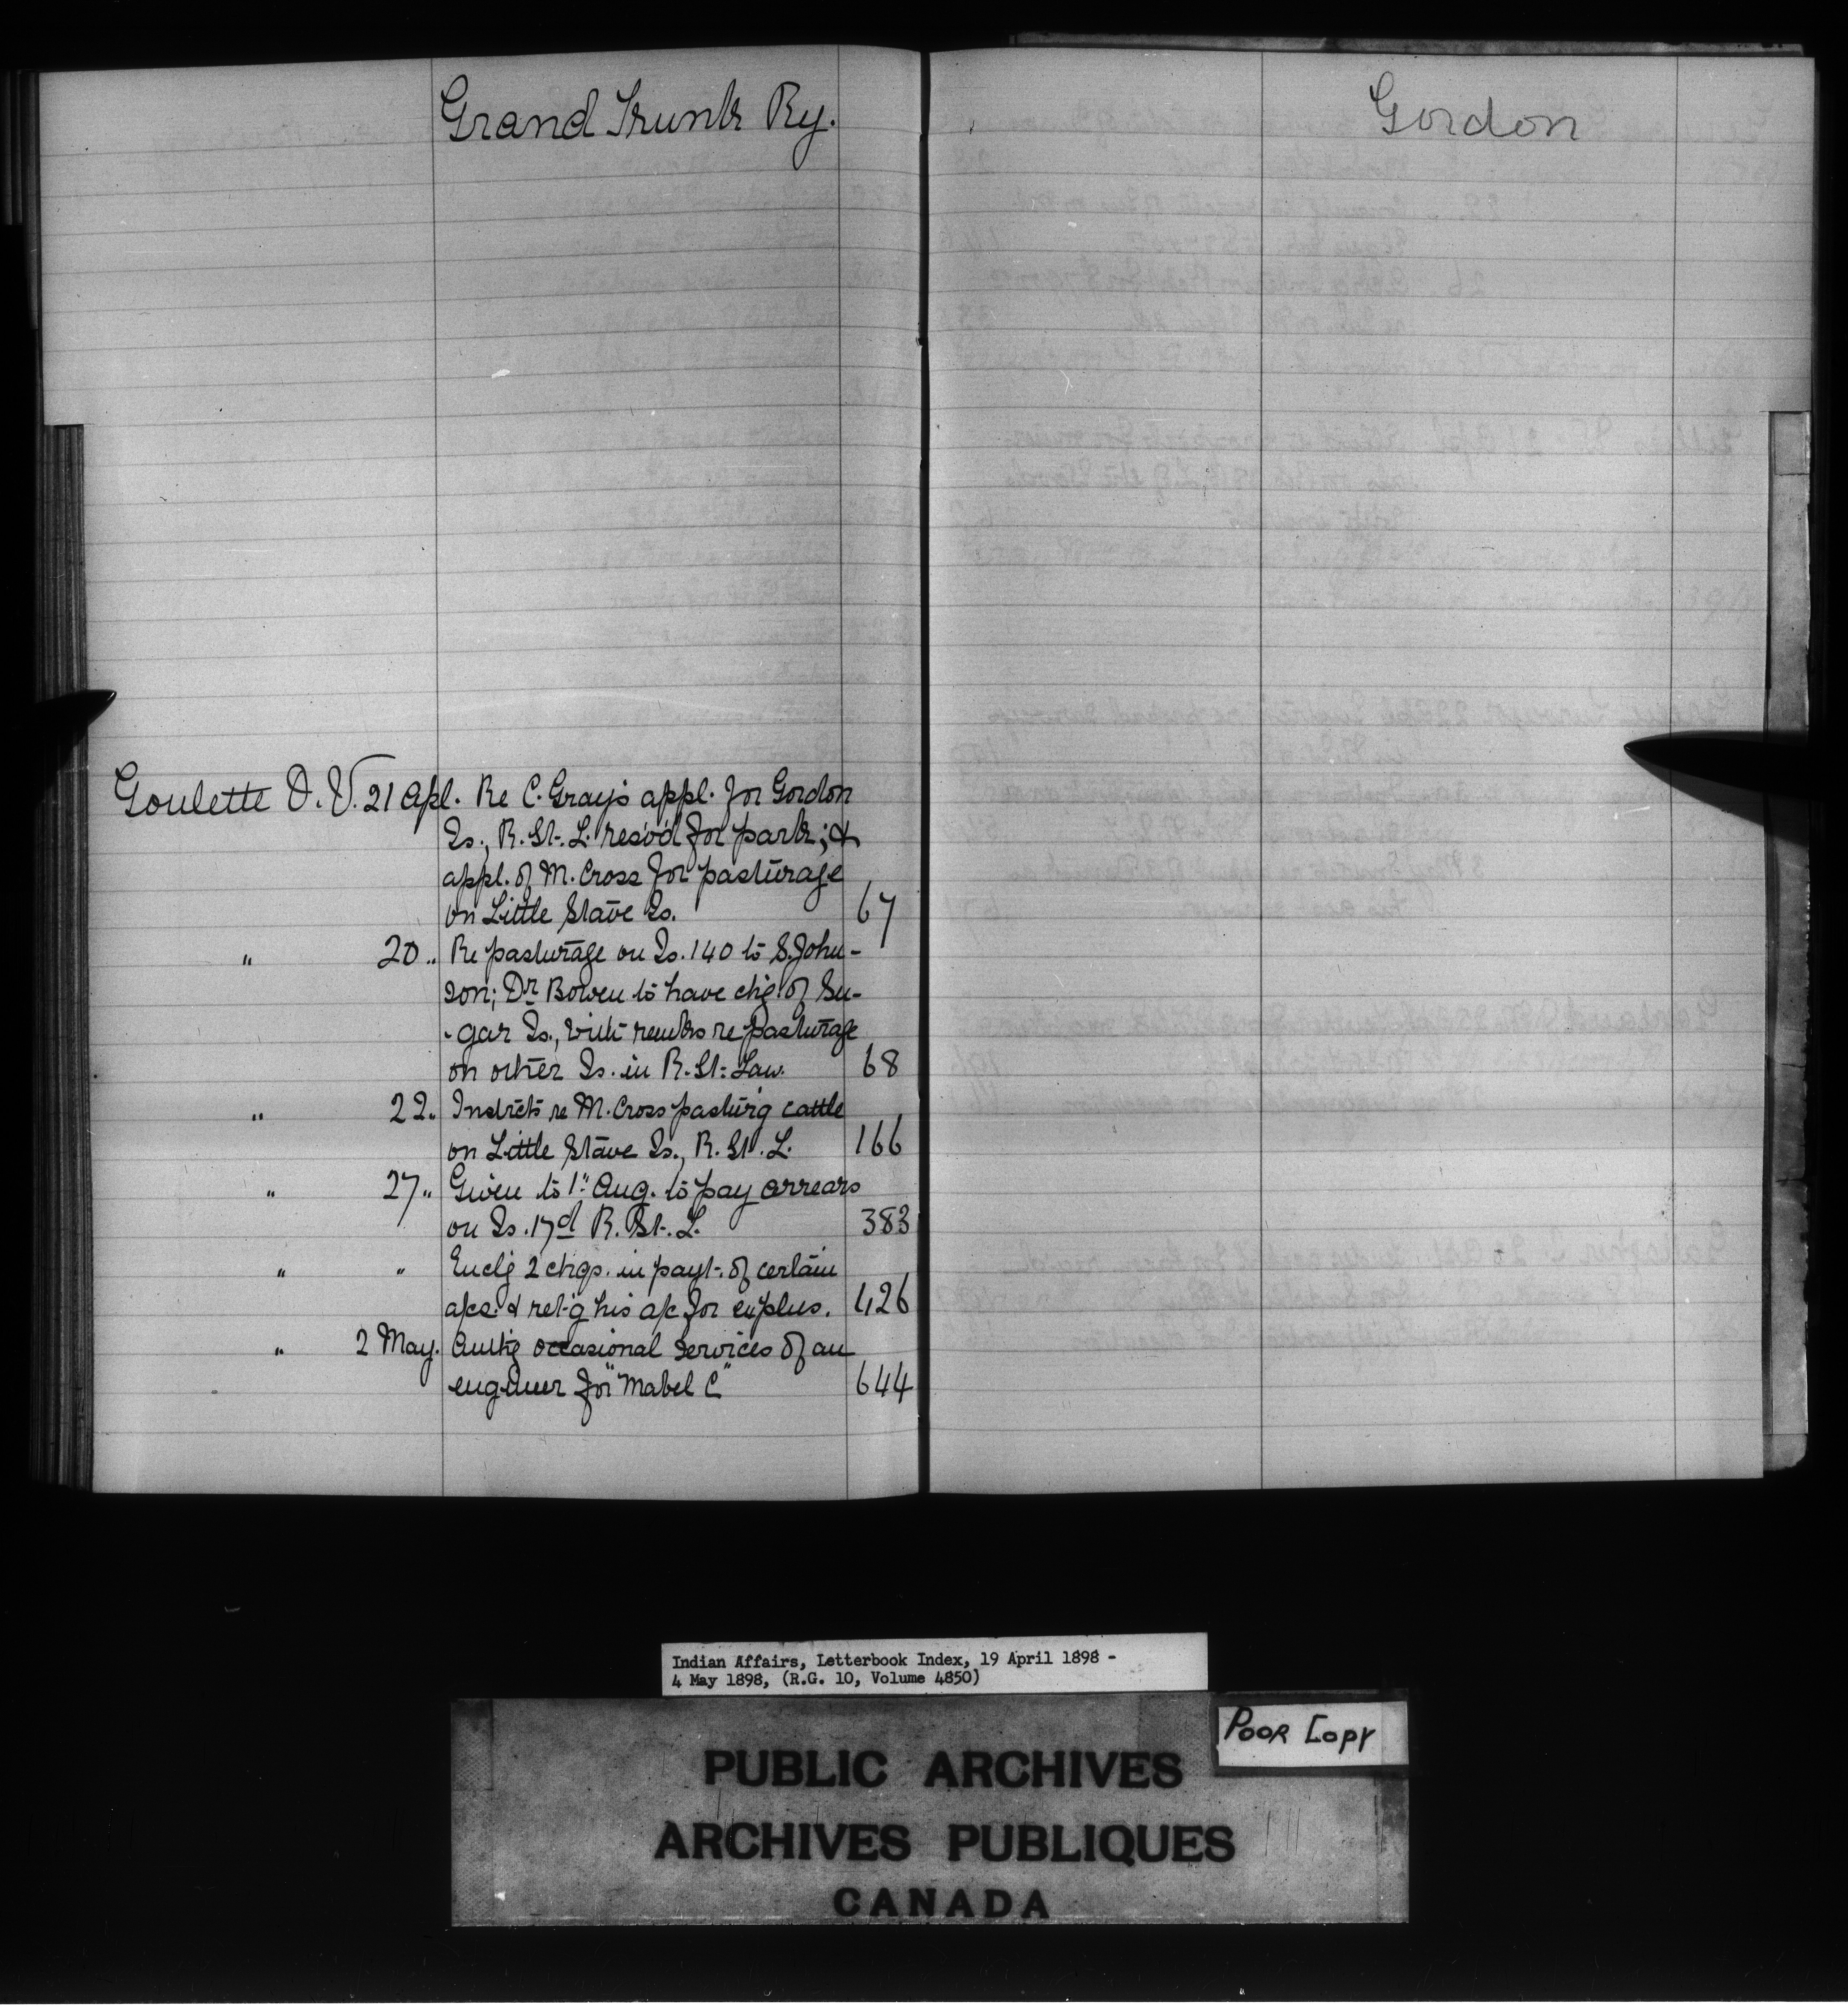 Grand Trunk Ry.
Goulette D. V. 21 Apl. Re C. Gray's appl. for Gordon
Is., R. St. L. resv'd for park; &
appl. of M. Cross for pasturage
on Little Stave Is. 67
" 20 " Re pasturage on Is. 140 to S. John-
son; Dr Bowen to have chg. of Su-
-gar Is., with remks re pasturage
on other Is. in R. St. Law. 68
" 22 " Instrcts re M. Cross pasturg cattle
on Little Stave Is., R. St. L. 166
" 27 " Given to 1" Aug. to pay arrears
on Is. 17d R. St. L. 383
" " Enclg 2 chqs. in payt. of certain
a/cs. & ret-g his a/c for explns. 426
" 2 May. Authg occasional services of an
engineer for "Mabel C" 644
Gordon
Indian Affairs, Letterbook Index, 19 April 1898 -
4 May 1898, (R.G. 10, Volume 4850)
POOR COPY
PUBLIC ARCHIVES
ARCHIVES PUBLIQUES
CANADA